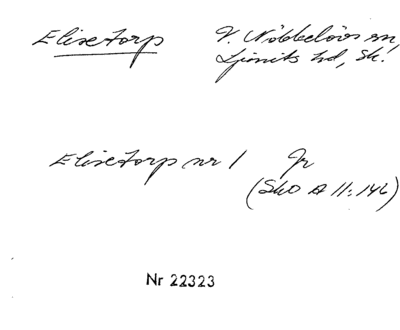 Elisetorp V. Nöbbelövs sn,
Ljunits hd, Sk.
Elisetorp nr 1 Jr
(SkO A 11:146)
Nr 22323